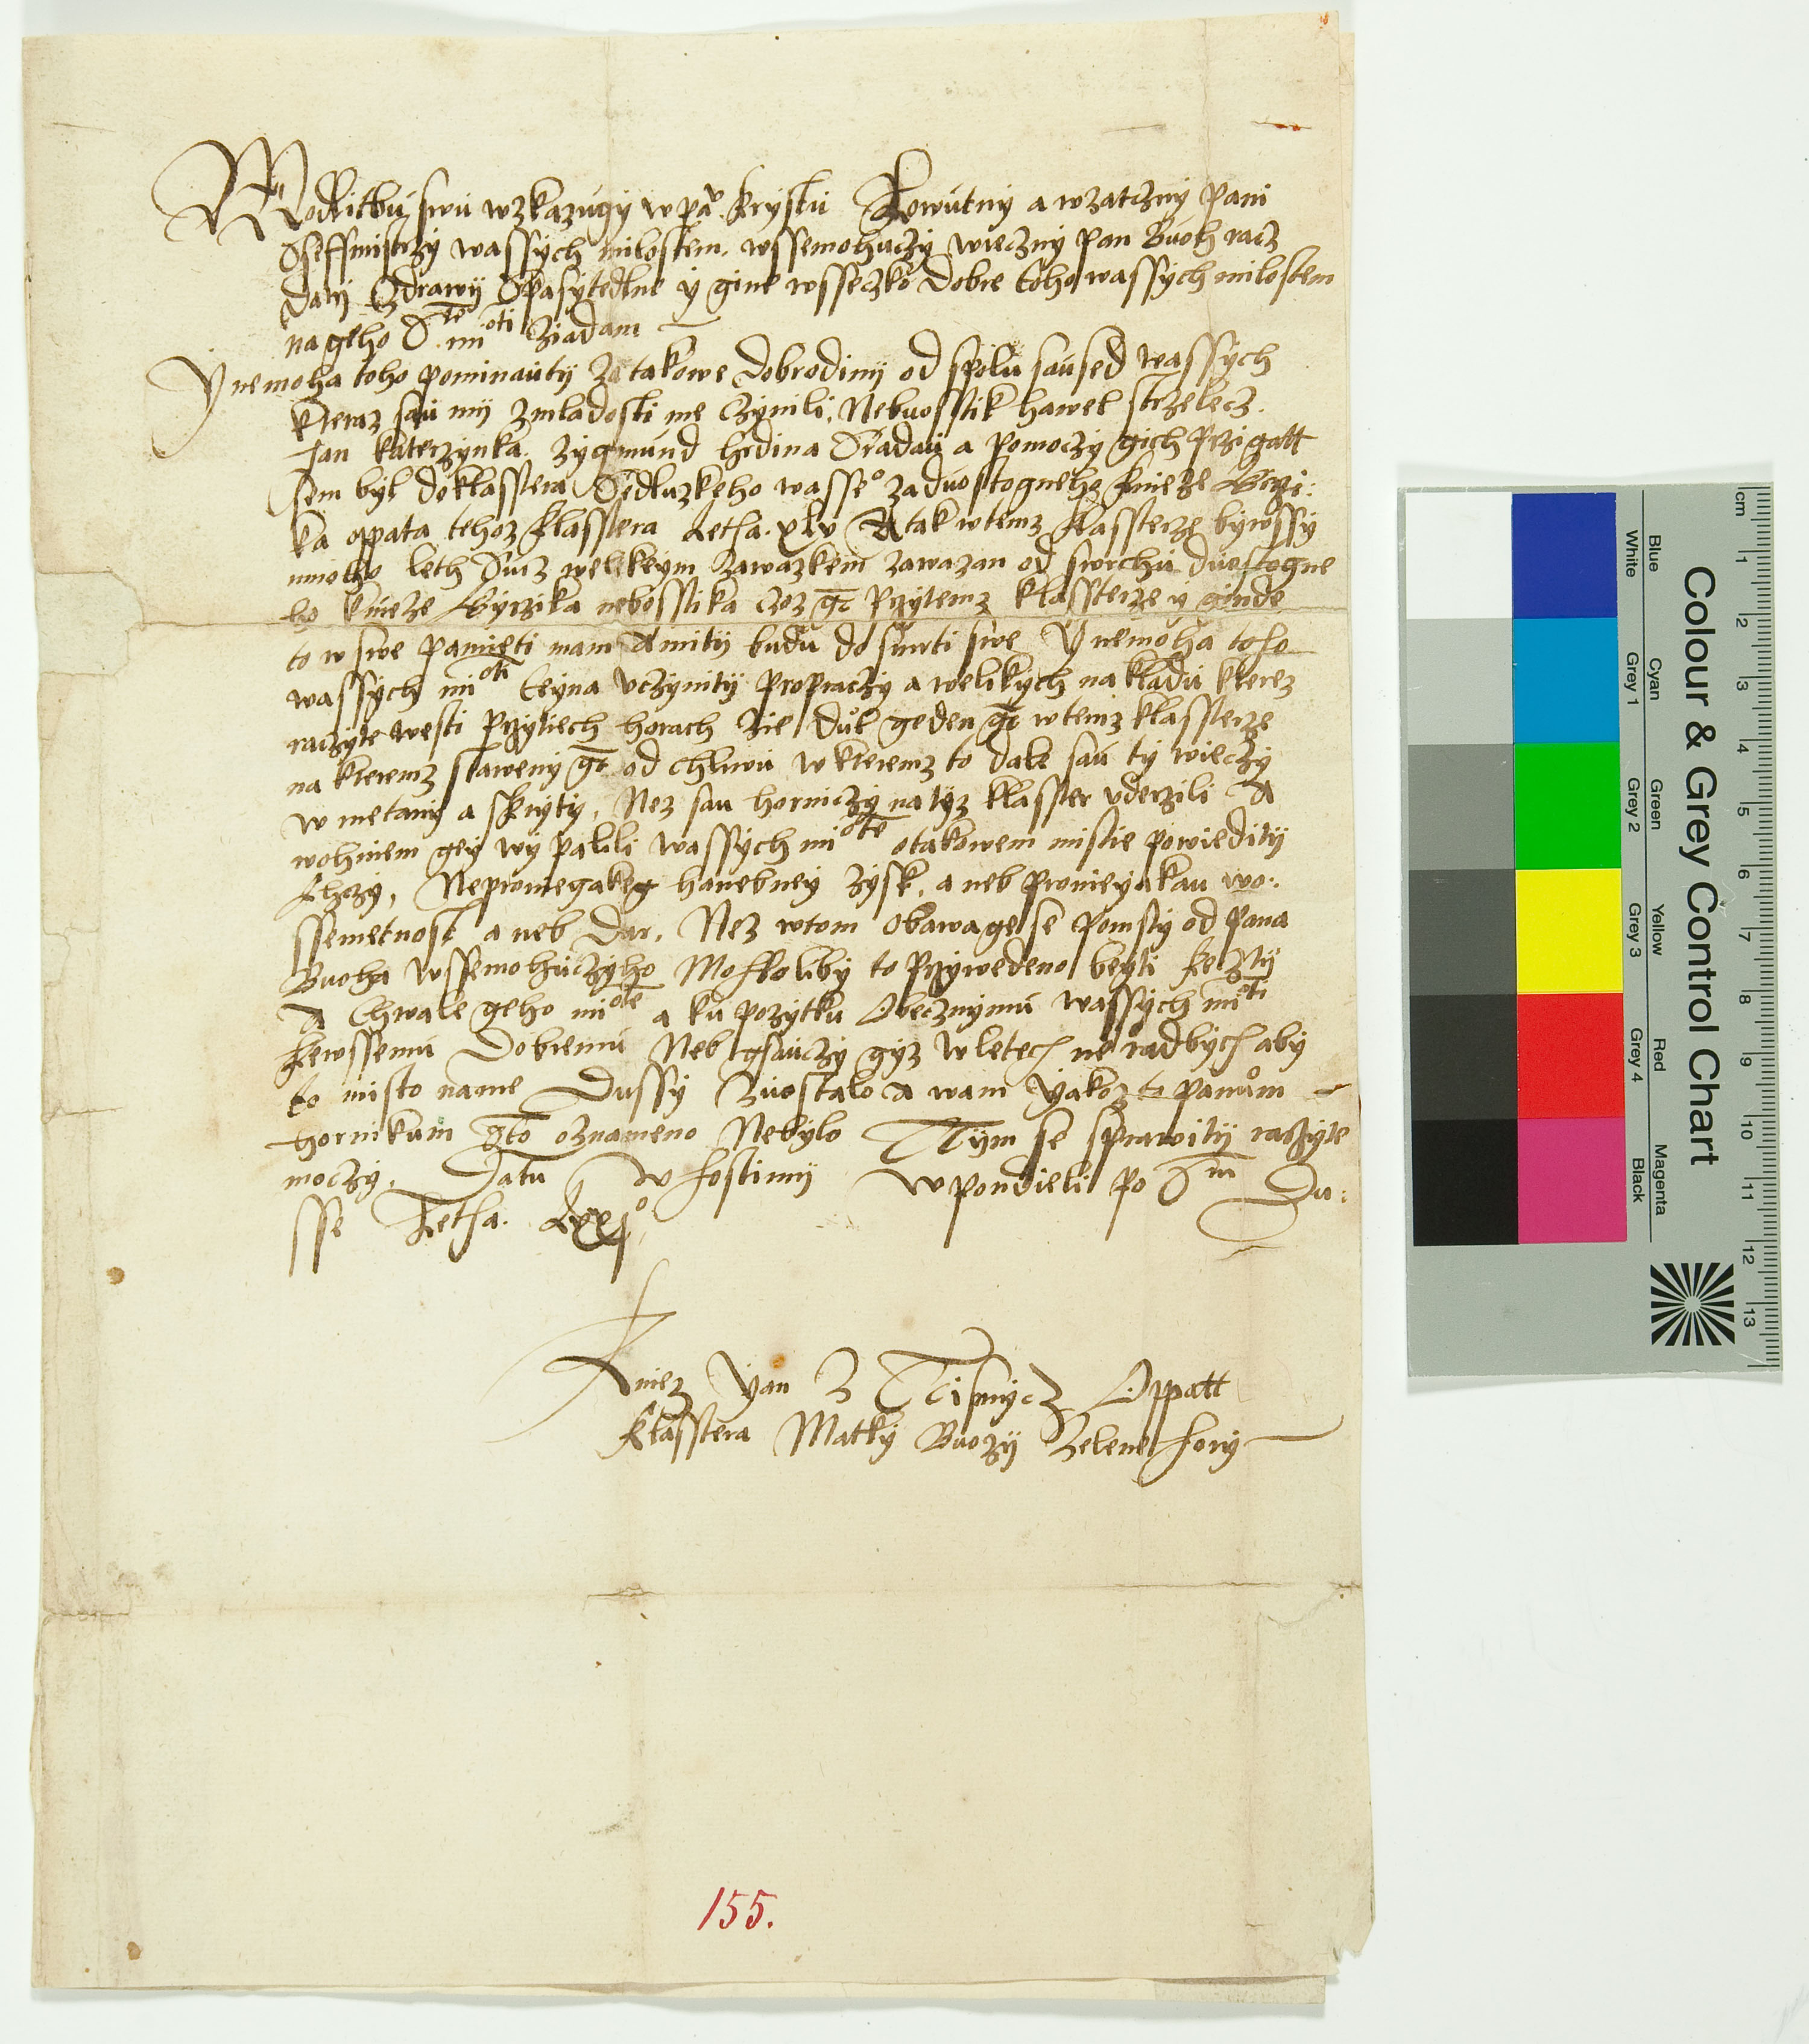 Modlitbú swú wzkazugy w pā Krystú Powútny a wzatczny Pani
Sseffmistrzy wassych milostem. wssemohuczy wieczny pan Buoh racz
daty Zdrawy Spasytedlne y gine wsseczko dobre toho wassych milostem
na geho S. te mi oti ziadam
Y nemoha toho pominauty za takowe dobrodiny od spolu saused wassych
kteraz sau my z mladosti me czynili, Nebuosstik hawel strzelecz.
Jan katerzynka. Zygmund hrdina S radau a pomoczy gich Przigatt
sem byl do klasstera Sedluzkeho wasse° za duostogneho knieze Girzi:
ka oppata tehoz klasstera Letha. xlv A tak w temz klassterze bywssy
mnoho leth Surz welikym zawazkem zawazan od swrchu duostogne
ho knieze Gyrzika nebosstika czoz gt Przytemz klassterze y ginde
to w swe Pamieti mam A mity budu do smrti swe Y nemoha toho
wassych mi oti Teyna vczynity pro praczy a welikych nakladu kterez
raczyte westi Przytiech horach zie dul geden gt w temz klassterze
na kteremz staweny gt od chliwu w kteremz to dale sau ty wieczy
w metany a skryty, Nez sau horniczy na tyz klasster vderzili A
wohniem gey wypalili wassych mi ote o takowem mistie powiedity
Chczy, Ne pro niegakeg hanebney Zysk, a neb pro nieyakau wo:
ssemetnost a neb Dar, Nez w tom obawage se Pomsty od Pana
Buoha wssemohúczyho Mohloliby to Przywedeno beyti ke Czty
A Chwale geho mi ote a ku pozytku Obecznymu wassych mi ti
kewssemu Dobremú Neb gsauczy gyz w letech ne radbych aby
to misto na me Dussy Zuostalo A wam yakoz to panuom
hornikum gto oznameno Nebylo Tym se sprawity raczyte
moczy. Datu w hostinny w pondieli po S m Du:
sse Letha. Lxx°
Kniez Yan z Tissnycz Oppatt
klasstera Matky Buozy Zelene hory
155.